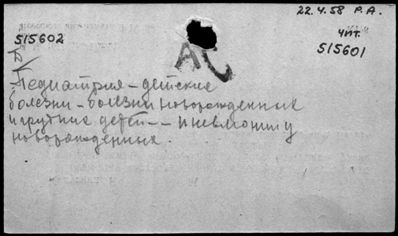 22.4.58 Р.А.
515602
чит.
515601
АС
Педиатрия – детские
болезни – болезни новорожденные
и грудные дети – – пневмонии у
новорожденных.